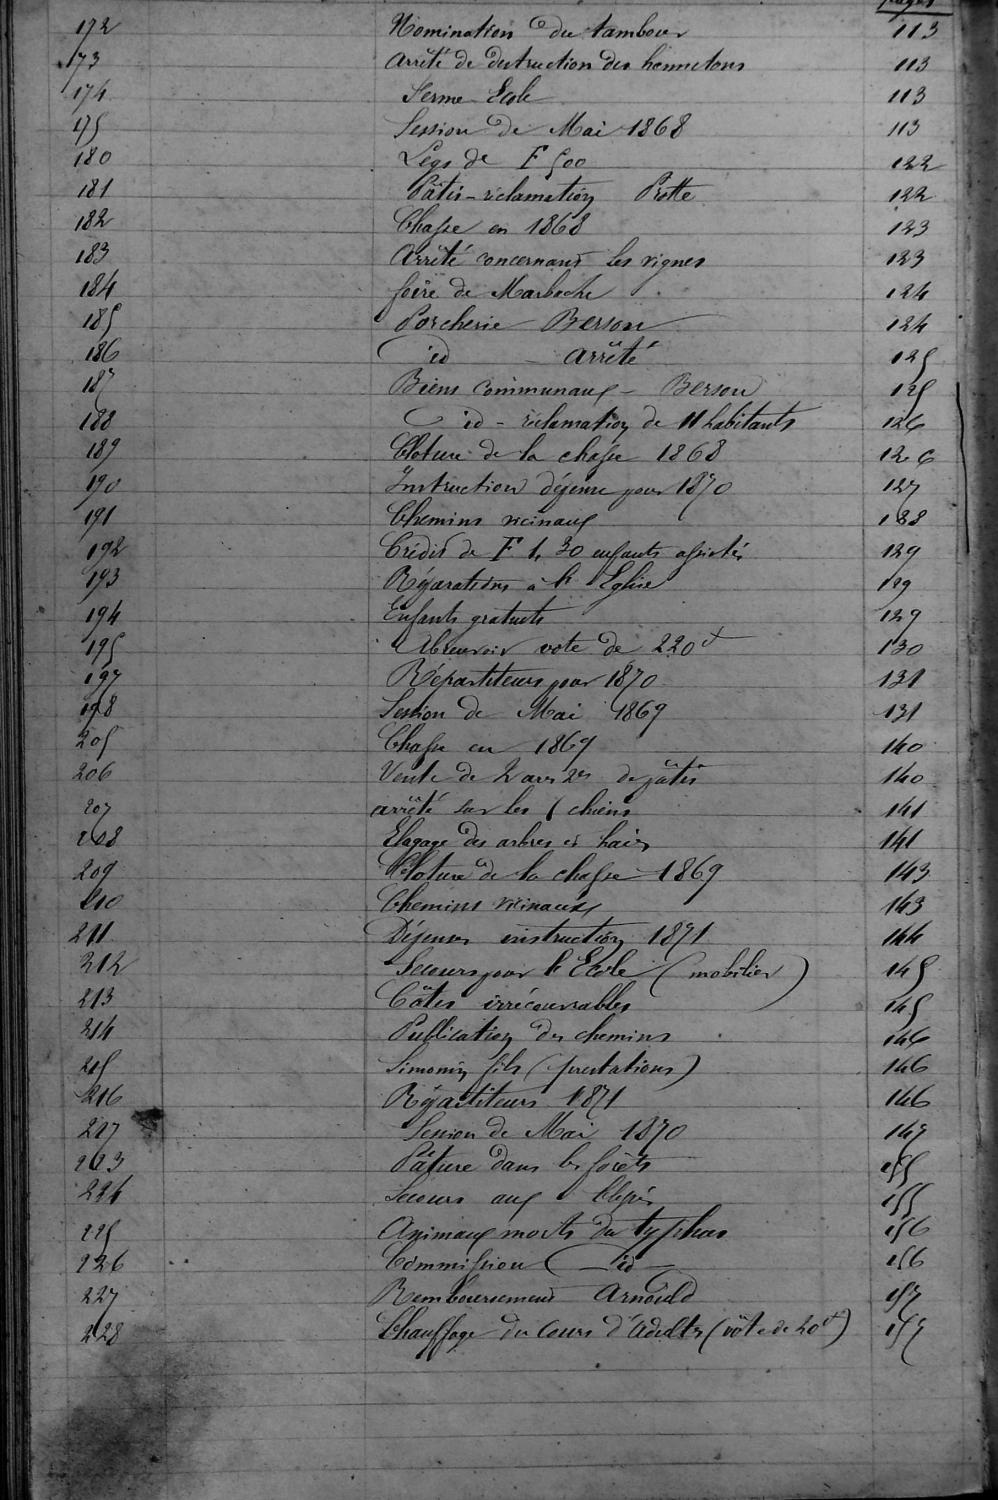 pages
172 Nomination du tambour 113
173 Arrêté de destruction des hannetons 113
174 Ferme Ecole 113
175 Session de Mai 1868 113
180 Legs de F 500 122
181 Pâtis - réclamation Protte 122
182 Chasse en 1868 123
183 Arrêté concernant les vignes 123
184 foire de Marbache 124
185 Porcherie Berson 124
186 id arrêté 125
187 Biens communaux - Berson 125
188 id - réclamation de 11 habitants 126
189 Cloture de la chasse 1868 126
190 Instruction dépense pour 1870 127
191 Chemins vicinaux 128
192 Crédit de F 1,30 enfants assistés 129
193 Réparations à l' Eglise 129
194 Enfants gratuits 129
195 Abreuvoir vote de 220 f 130
197 Répartiteurs pour 1870 131
198 Session de Mai 1869 131
205 Chasse en 1869 140
206 Vente de 2 ares de pâtis 140
207 arrêté sur les chiens 141
208 Elagage des arbres et haies 141
209 Cloture de la chasse 1869 143
210 Chemins vicinaux 143
211 Dépenses instruction 1871 144
212 Secours pour l' Ecole (mobilier) 145
213 Côtes irrécouvrables 145
214 Publication des chemins 146
215 Simonin fils (prestations) 146
216 Répartiteurs 1871 146
217 Session de Mai 1870 147
223 Pâture dans les forêts 155
224 Secours aux blessés 155
225 Animaux morts du typhus 156
226 Commission id 156
227 Remboursement Arnould 157
228 Chauffage du cours d'adultes (vôte de 20 f) 157